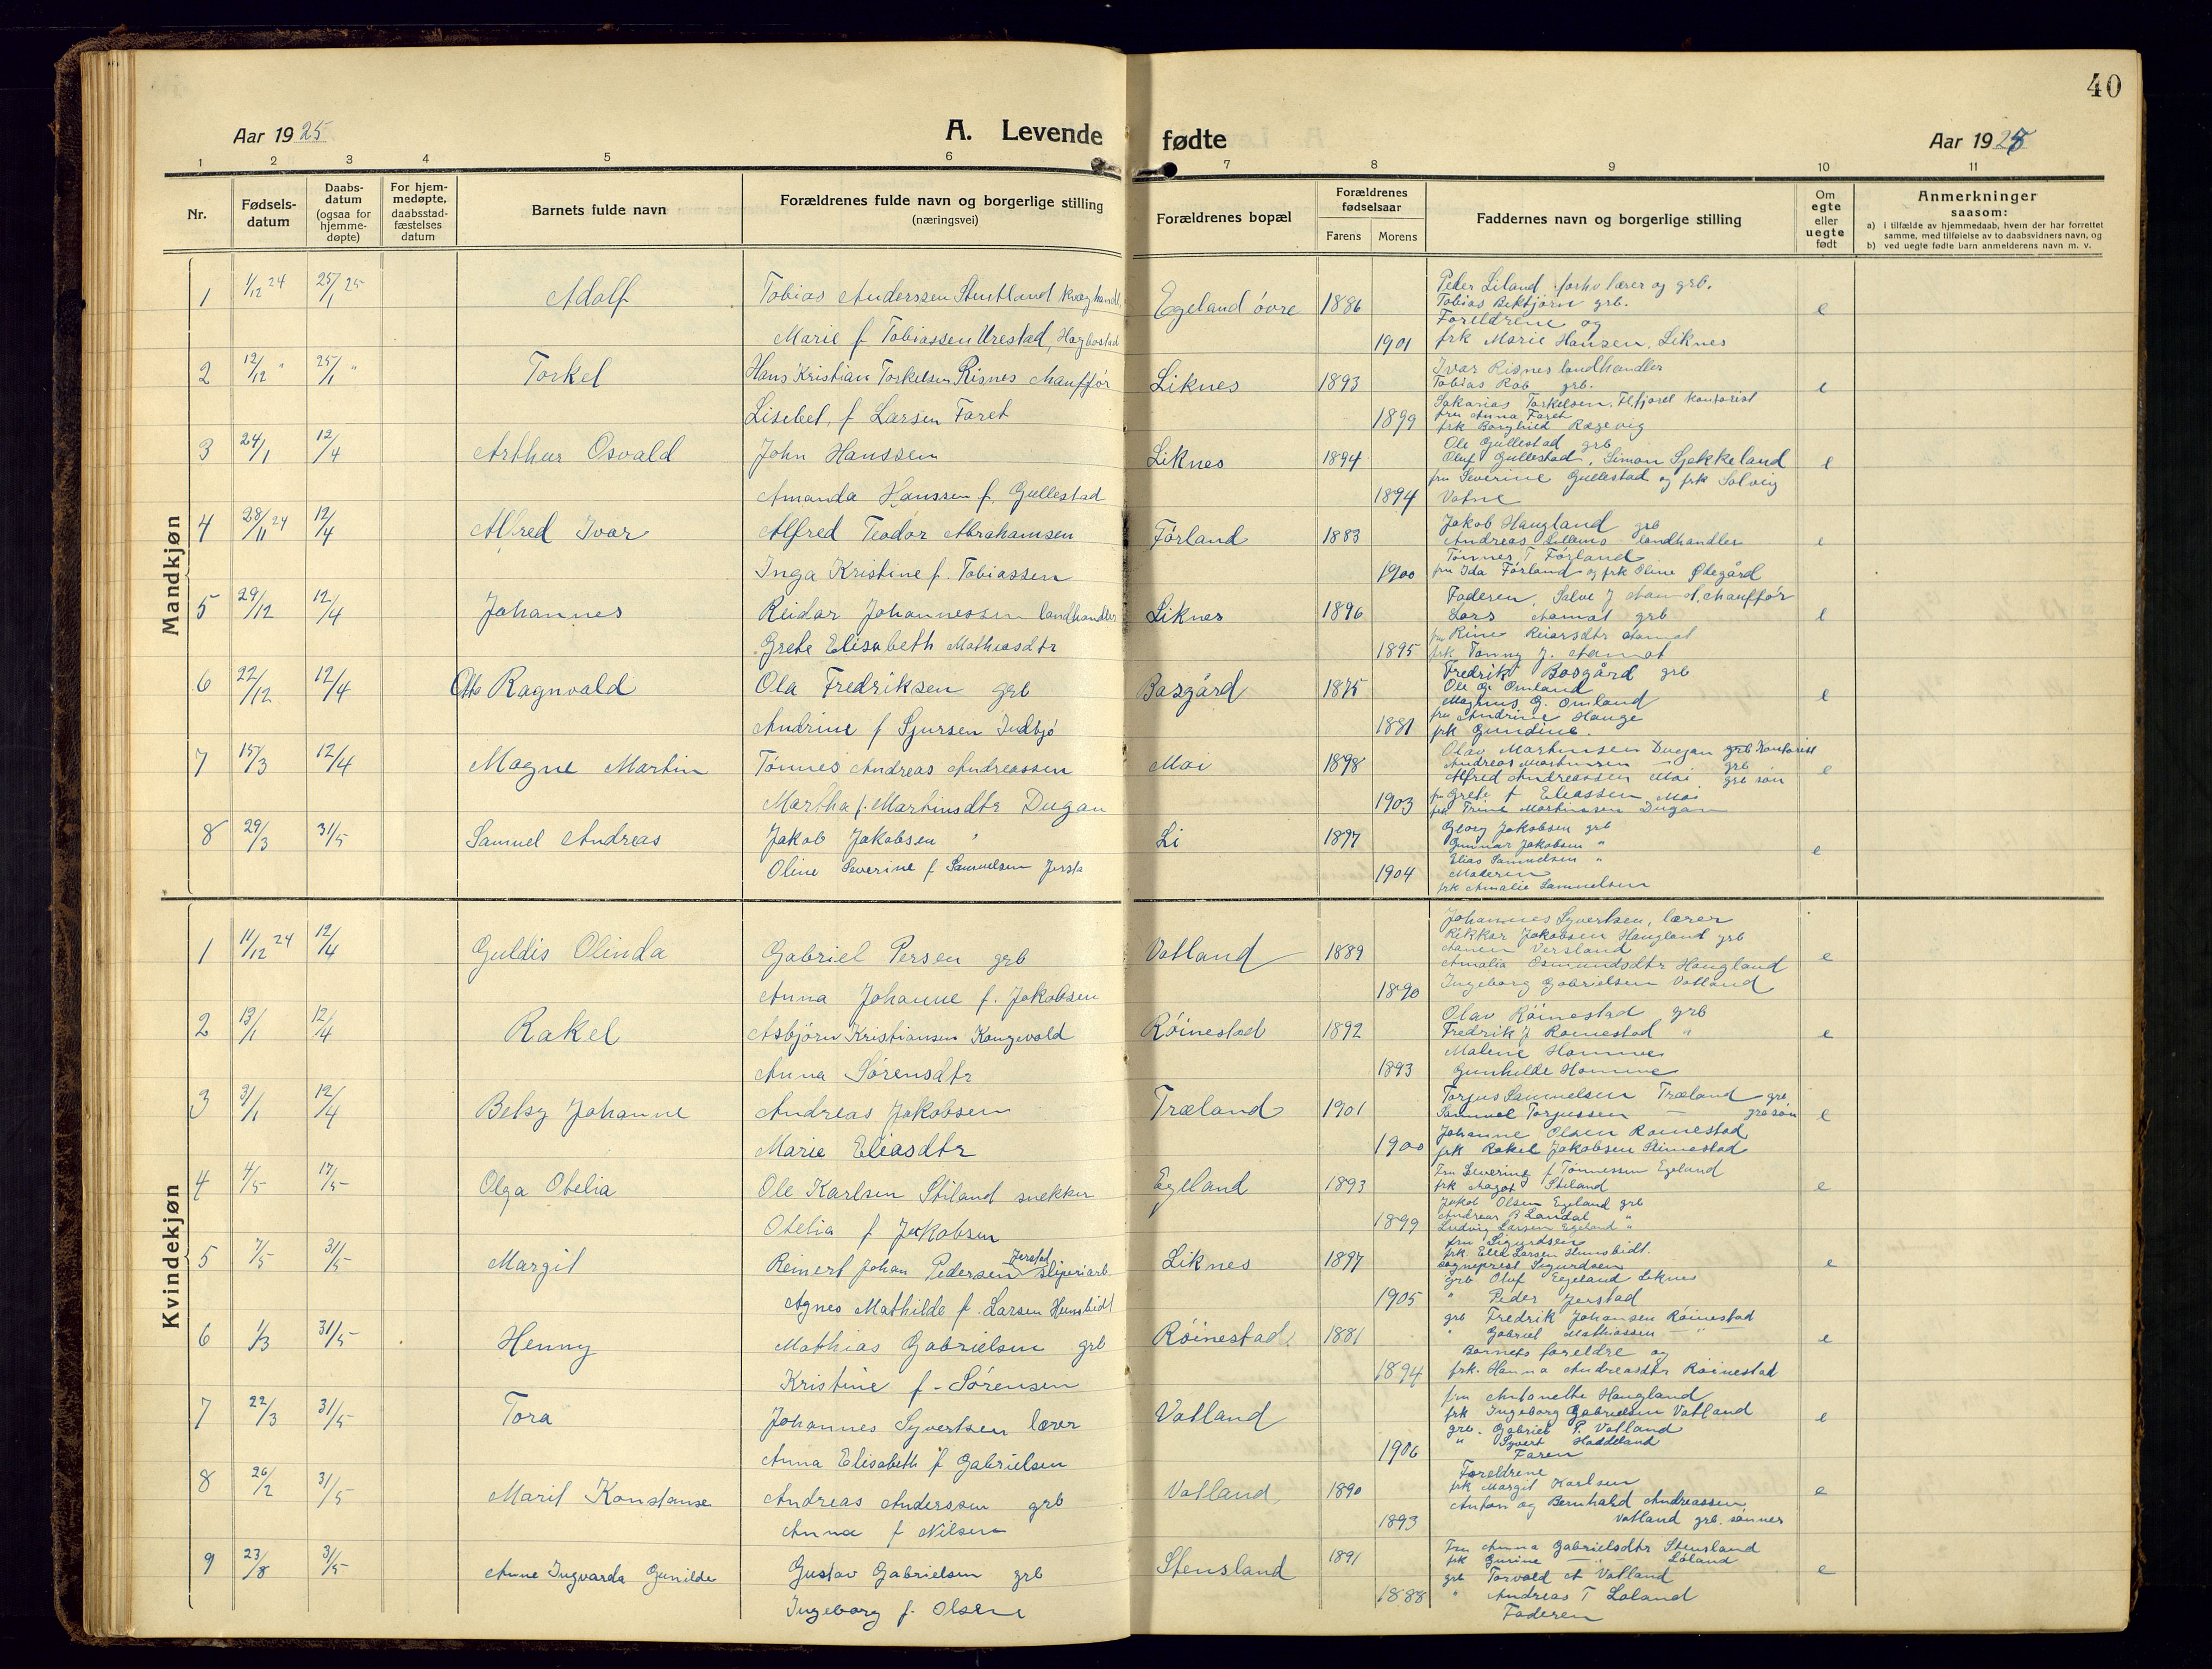 40
Aar 1925
A. Levende fødte
Aar 1925
1 2 3 4 5 6 7 8 9 10 11
Nr.
Fødsels-
datum
Daabs-
datum
(ogsaa for
hjemme-
døpte)
For hjem-
medøpte,
daabsstad-
fæstelses
datum
Barnets fulde navn
Forældrenes fulde navn og borgerlige stilling
(næringsvei)
Forældrenes bopæl
Forældrenes
fødselsaar
Farens Morens
Faddernes navn og borgerlige stilling
Om
egte
eller
uegte
født
Anmerkninger
saasom:
a) i tilfælde av hjemmedaab, hvem der har forrettet
samme, med tilføielse av to daabsvidners navn, og
b) ved uegte fødte barn anmelderens navn m. v.
Mandkjøn
1 1/12 24 25/1 25 Adolf Tobias Anderssen Stuetland kvæghandl. Egeland övre 1886 e
Marie f Tobiassen Urestad, Hægbostad 1901
Peder Liland forhv lærer og grb.
Tobias Birkjörn grb.
Foreldrene og
frk Marie Hansen, Liknes
2 12/12 " 25/1 " Torkel Hans Kristian Torkelsen Risnes chauffør Liknes 1893 e
Lisebet, f Larsen Faret 1899
Ivar Risnes landhandler
Tobias Rob grb.
Sakarias Torkelsen, Fl.fjord kontorist
fru Anna Faret
frk Borghild Rægevig
3 24/1 12/4 Arthur Osvald John Hanssen Liknes 1894 e
Amanda Hanssen f. Gullestad 1894
Ole Gullestad grb
Oluf Gullestad, Simon Sjekkeland
fru Severine Gullestad og frk Solveig
Vatne
4 28/11 24 12/4 Alfred Ivar Alfred Teodor Abrahamsen Förland 1883 e
Inga Kristine f. Tobiassen 1900
Jakob Haugland grb
Andreas landhandler
Tönnes T Förland
fru Ida Förland og frk Oline Ødegård
5 29/12 12/4 Johannes Reidar Johannessen landhandler Liknes 1896 e
Grete Elisabeth Mathiasdtr 1895
Faderen, Salve J Aamot, chauffør
Lars Aamot grb
fru Rine Aamot
frk Fanny J. Aamot
6 22/12 12/4 Otto Ragnvald Ola Fredriksen grb Basgård 1875 e
Andrine f Sjursen Indbjö 1881
Fredrik Basgård grb
Ole G. Omland
Magnus G. Omland
fru Andrine Hauge
frk Gundine.
7 15/3 12/4 Magne Martin Tönnes Andreas Andreassen Moi 1898 e
Martha f. Martinsdtr Dugan 1903
Olav Martinsen Dugan grb Kontorist
Andreas Martinsen — grb
Alfred Andreassen Moi grb sön
fru Grete f Eliassen Moi
frk Trine Martinsen Dugan
8 29/3 31/5 Samuel Andreas Jakob Jakobsen Li 1897 e
Oline Severine f Samuelsen Jersta 1904
Georg Jakobsen grb
Gunnar Jakobsen "
Elias Samuelsen "
Moderen
frk Amalie Samuelsen
Kvindekjøn
1 11/12 24 12/4 Guldis Olinda Gabriel Persen grb Vatland 1889 e
Anna Johanne f. Jakobsen 1890
Johannes Syvertsen, lærer
Rikkar Jakobsen Haugland grb
Versland
Amalia Osmundsdtr Haugland
Ingeborg Gabrielsen Vatland
2 13/1 12/4 Rakel Asbjörn Kristiansen Kongevold Röinestad 1892 e
Anna Sörensdtr 1893
Olav Röinestad grb
Fredrik J Röinestad "
Malene Homme
Gunhilde Homme
3 31/1 12/4 Betsy Johanne Andreas Jakobsen Træland 1901 e
Marie Eliasdtr 1900
Torjus Samuelsen Træland grb
Samuel Torjussen — grb sön
Johanne Olsen Röinestad
frk Rakel Jakobsen Stimestad
4 4/5 17/5 Olga Otelia Ole Karlsen Stiland snekker Egeland 1893 e
Otelia f Jakobsen 1899
Fru Severine f Tönnessen Egeland
frk Aagot Stiland
Jakob Olsen Egeland grb
Andreas B Landal "
Ludvig Larsen Egeland "
5 7/5 31/5 Margit Reinert Johan Pedersen Jerstad sliperiarb. Liknes 1897 e
Agnes Mathilde f. Larsen Humsbidt 1905
fru Sigurdsen
frk. Ella Larsen Humsbidt.
sogneprest Sigurdsen
grb Oluf Egeland Liknes
" Peder Jerstad
6 1/3 31/5 Henny Mathias Gabrielsen grb Röinestad 1881 e
Kristine f. Sörensen 1894
grb Fredrik Johansen Röinestad
" Gabriel Mathiassen — " —
Barnets foreldre og
frk. Hanna Andreasdtr Röinestad
7 22/3 31/5 Tora Johannes Syvertsen lærer Vatland e
Anna Elisabeth f Gabrielsen 1906
fru Antonette Haugland
frk Ingeborg Gabrielsen Vatland
grb. Gabriel P. Vatland
" Syvert Haddeland
Faren
8 26/2 31/5 Marit Konstanse Andreas Anderssen grb Vatland 1890 e
Anna f Nilsen 1893
Foreldrene
frk Margit Karlsen
Anton og Bernhard Andreassen
Vatland grb. sönner
9 23/8 31/5 Anne Ingvarda Gunilde Gustav Gabrielsen grb Stensland 1891 e
Ingeborg f. Olsen 1888
Fru Anna Gabrielsdtr Stensland
frk Gurine — " — Löland
grb Torvald A Vatland
" Andreas T Loland
Faderen